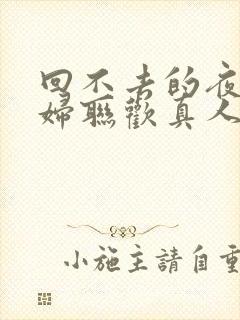 回不去的夜
婦聯歡真人
小施主請自重